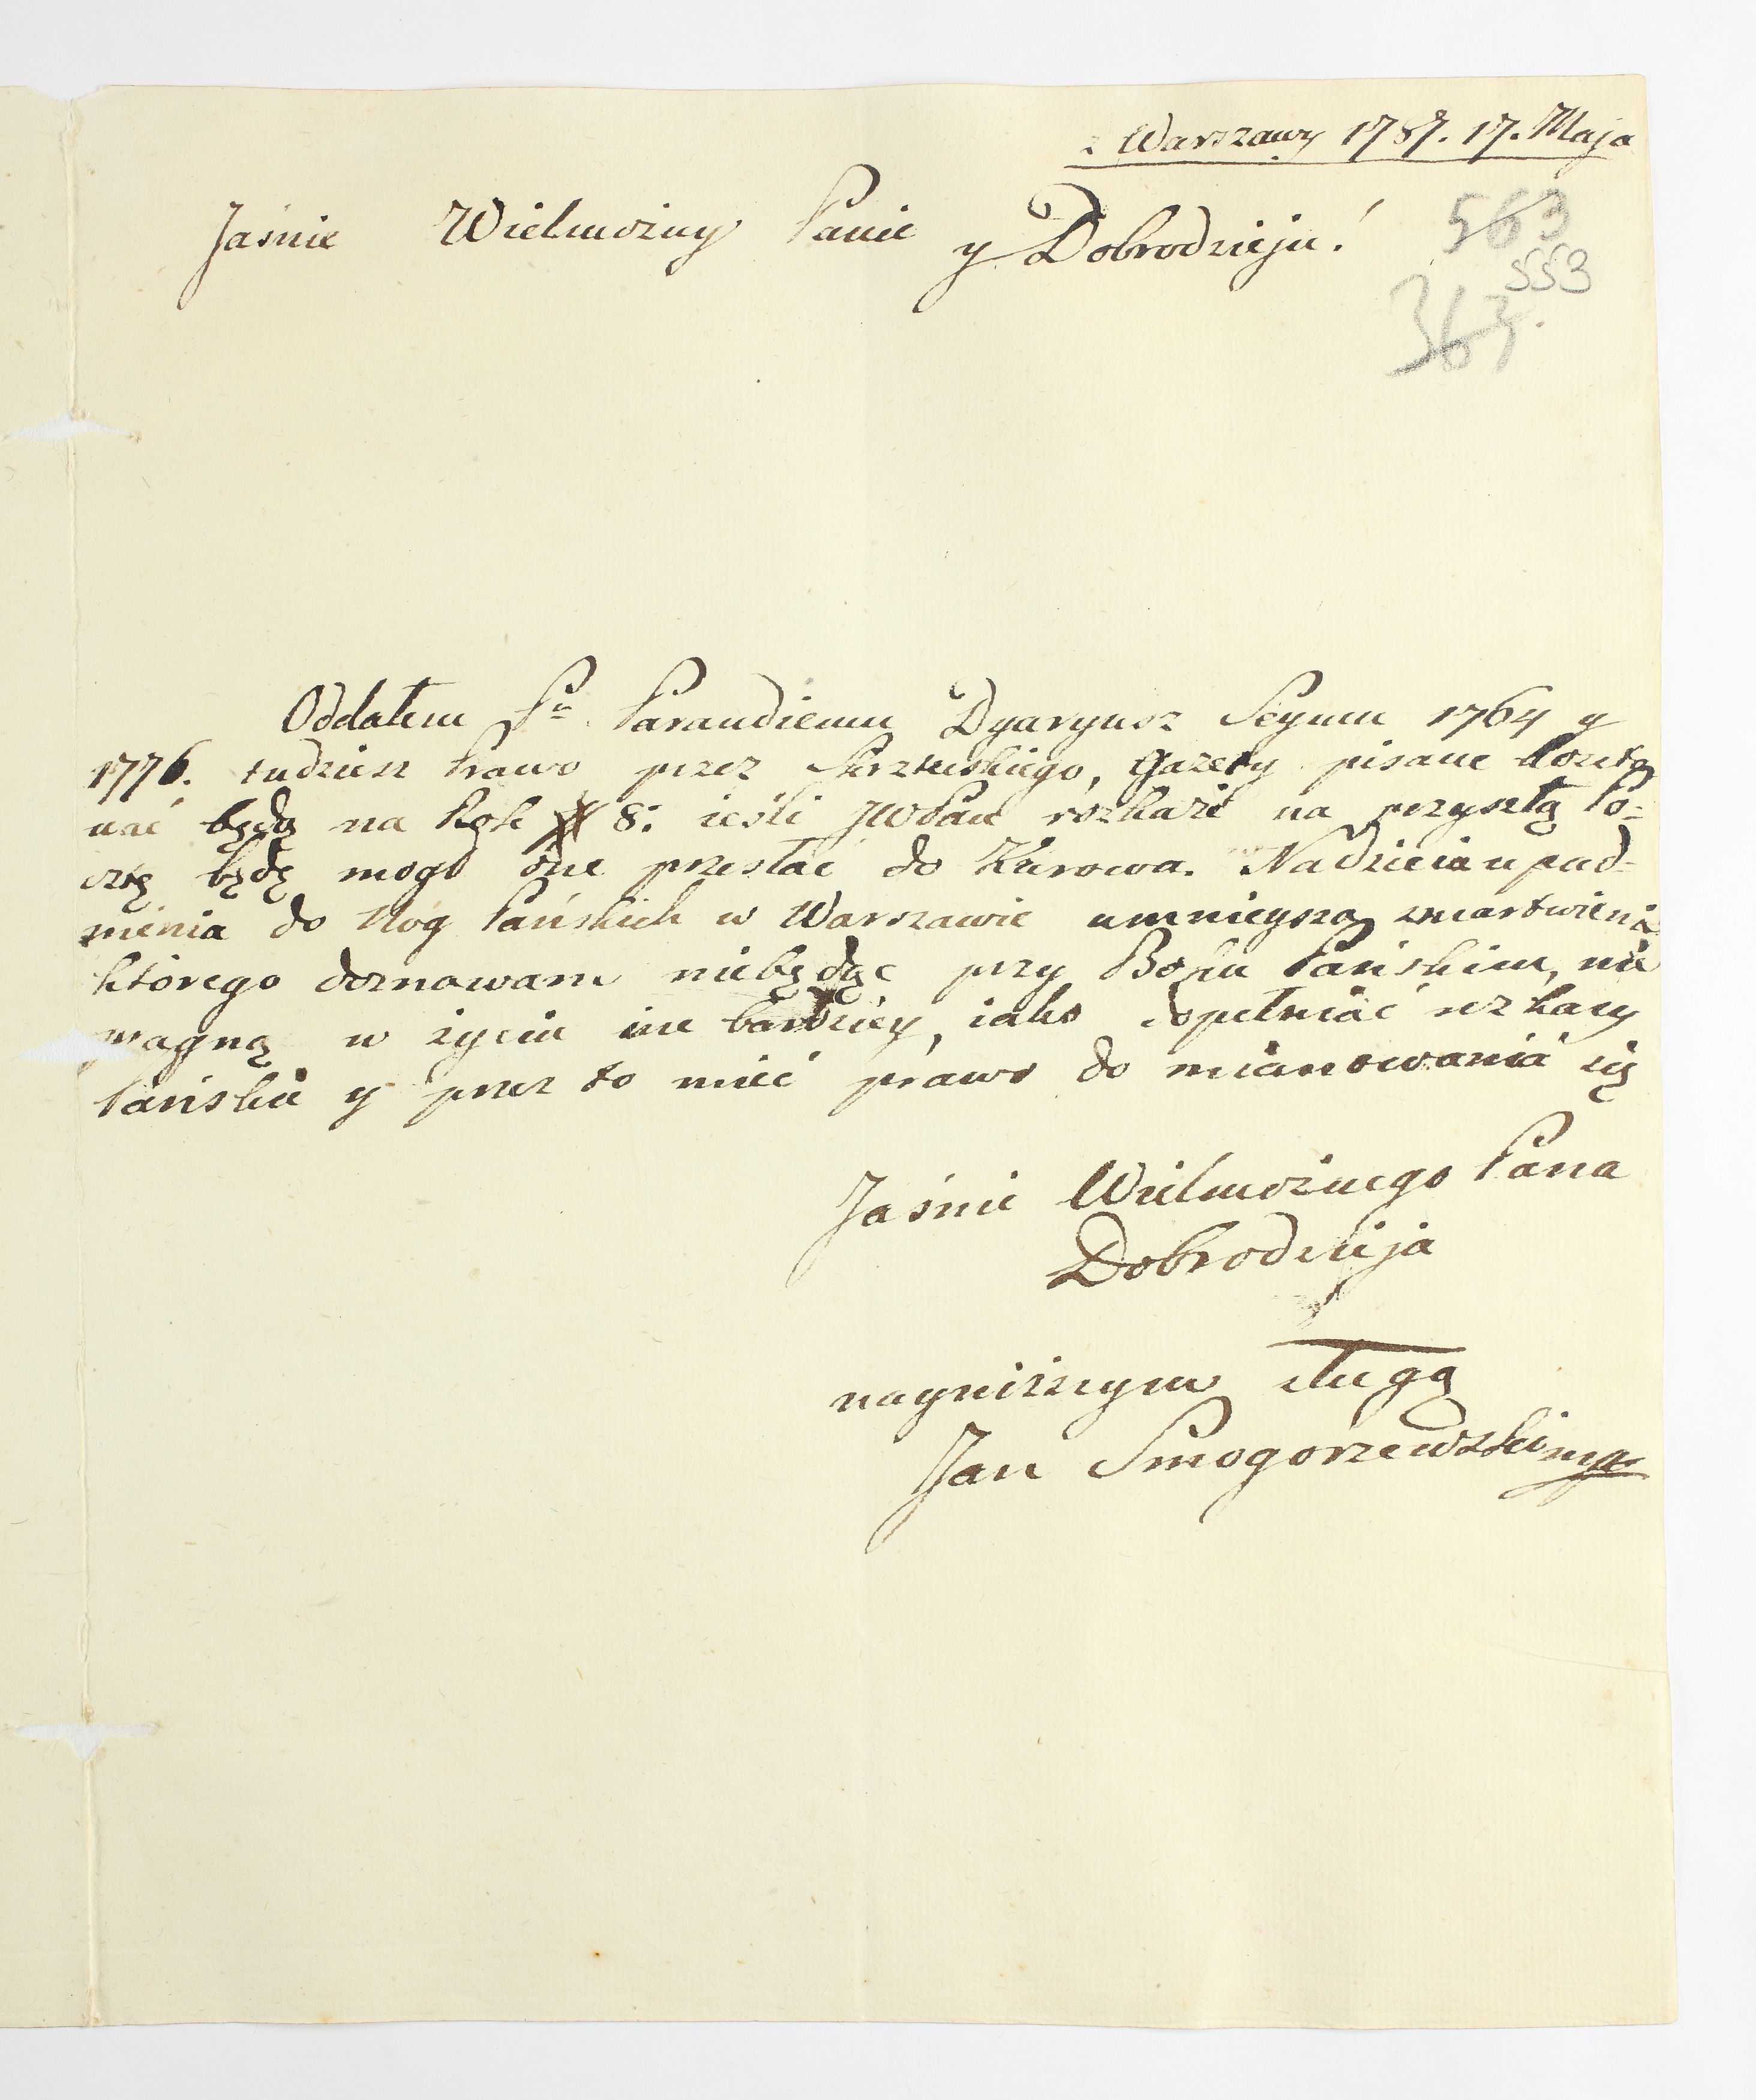 z Warszawy 1787. 17. Maja
Jaśnie Wielmożny Panie y Dobrodzieju!
563
553
363.
Oddałem Pu Parandiemu Dyaryusz Seymu 1764 y
1776. tudziesz Prawo przez Skrzetuskiego, Gazety pisane koszto
wać będą na Rok 8: ieśli JWPan rozkaże na przyszłą Po=
cztę będę mogł one przesłać do Kurowa. Nadzieia upad=
nienia do Nóg Pańskich w Warszawie umnieysza zmartwienia
którego doznawam niebędąc przy Boku Pańskim, nie
pragnę w życiu iuż bardziey, iako dopełniać rozkazy
Pańskie y przez to mieć prawo do mianowania się
Jaśnie Wielmożnego Pana
Dobrodzieja
nayniższym sługą
Jan Smogorzewski mp